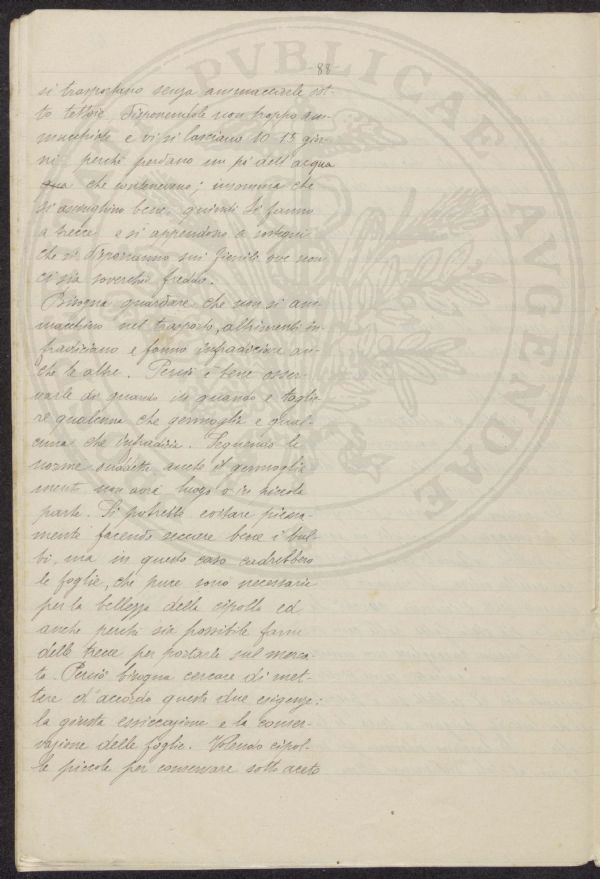 -88-
si trasportano senza ammaccarle sot-
to tettoie, disponendole non troppo am-
mucchiate e vi si lasciano 10-15 gior-
ni perchè perdano un pò dell'acqua
che contenevano; insomma che
si asciughino bene, quindi si fanno
a trecce e si appendono a sostegni
che si disporranno sui fienili ove non
ci sia soverchio freddo.
Bisogna guardare che non si am-
macchino nel trasporto, altrimenti in-
fradiciano e fanno infradiciare an-
che le altre. Perciò è bene osser-
varle di quando in quando e toglie-
re qualcuna che germoglia e qual-
cuna che infradicia. Seguendo le
norme suddette anche il germoglia-
mento non avrà luogo o in piccola
parte. Si potrebbe evitare piena-
mente facendo seccare bene i bul-
bi, ma in questo caso cadrebbero
le foglie, che pure sono necessarie
per la bellezza della cipolla ed
anche perchè sia possibile farne
delle trecce per portarle sul merca-
to. Perciò bisogna cercare di met-
tere d'accordo queste due esigenze:
la giusta essiccazione e la conser-
vazione delle foglie. Volendo cipol-
le piccole per conservare sott'aceto
PVBLICAE AVGENDAE